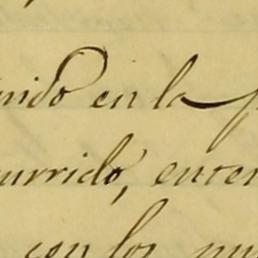 nido en la p
currido, enten
con los mu